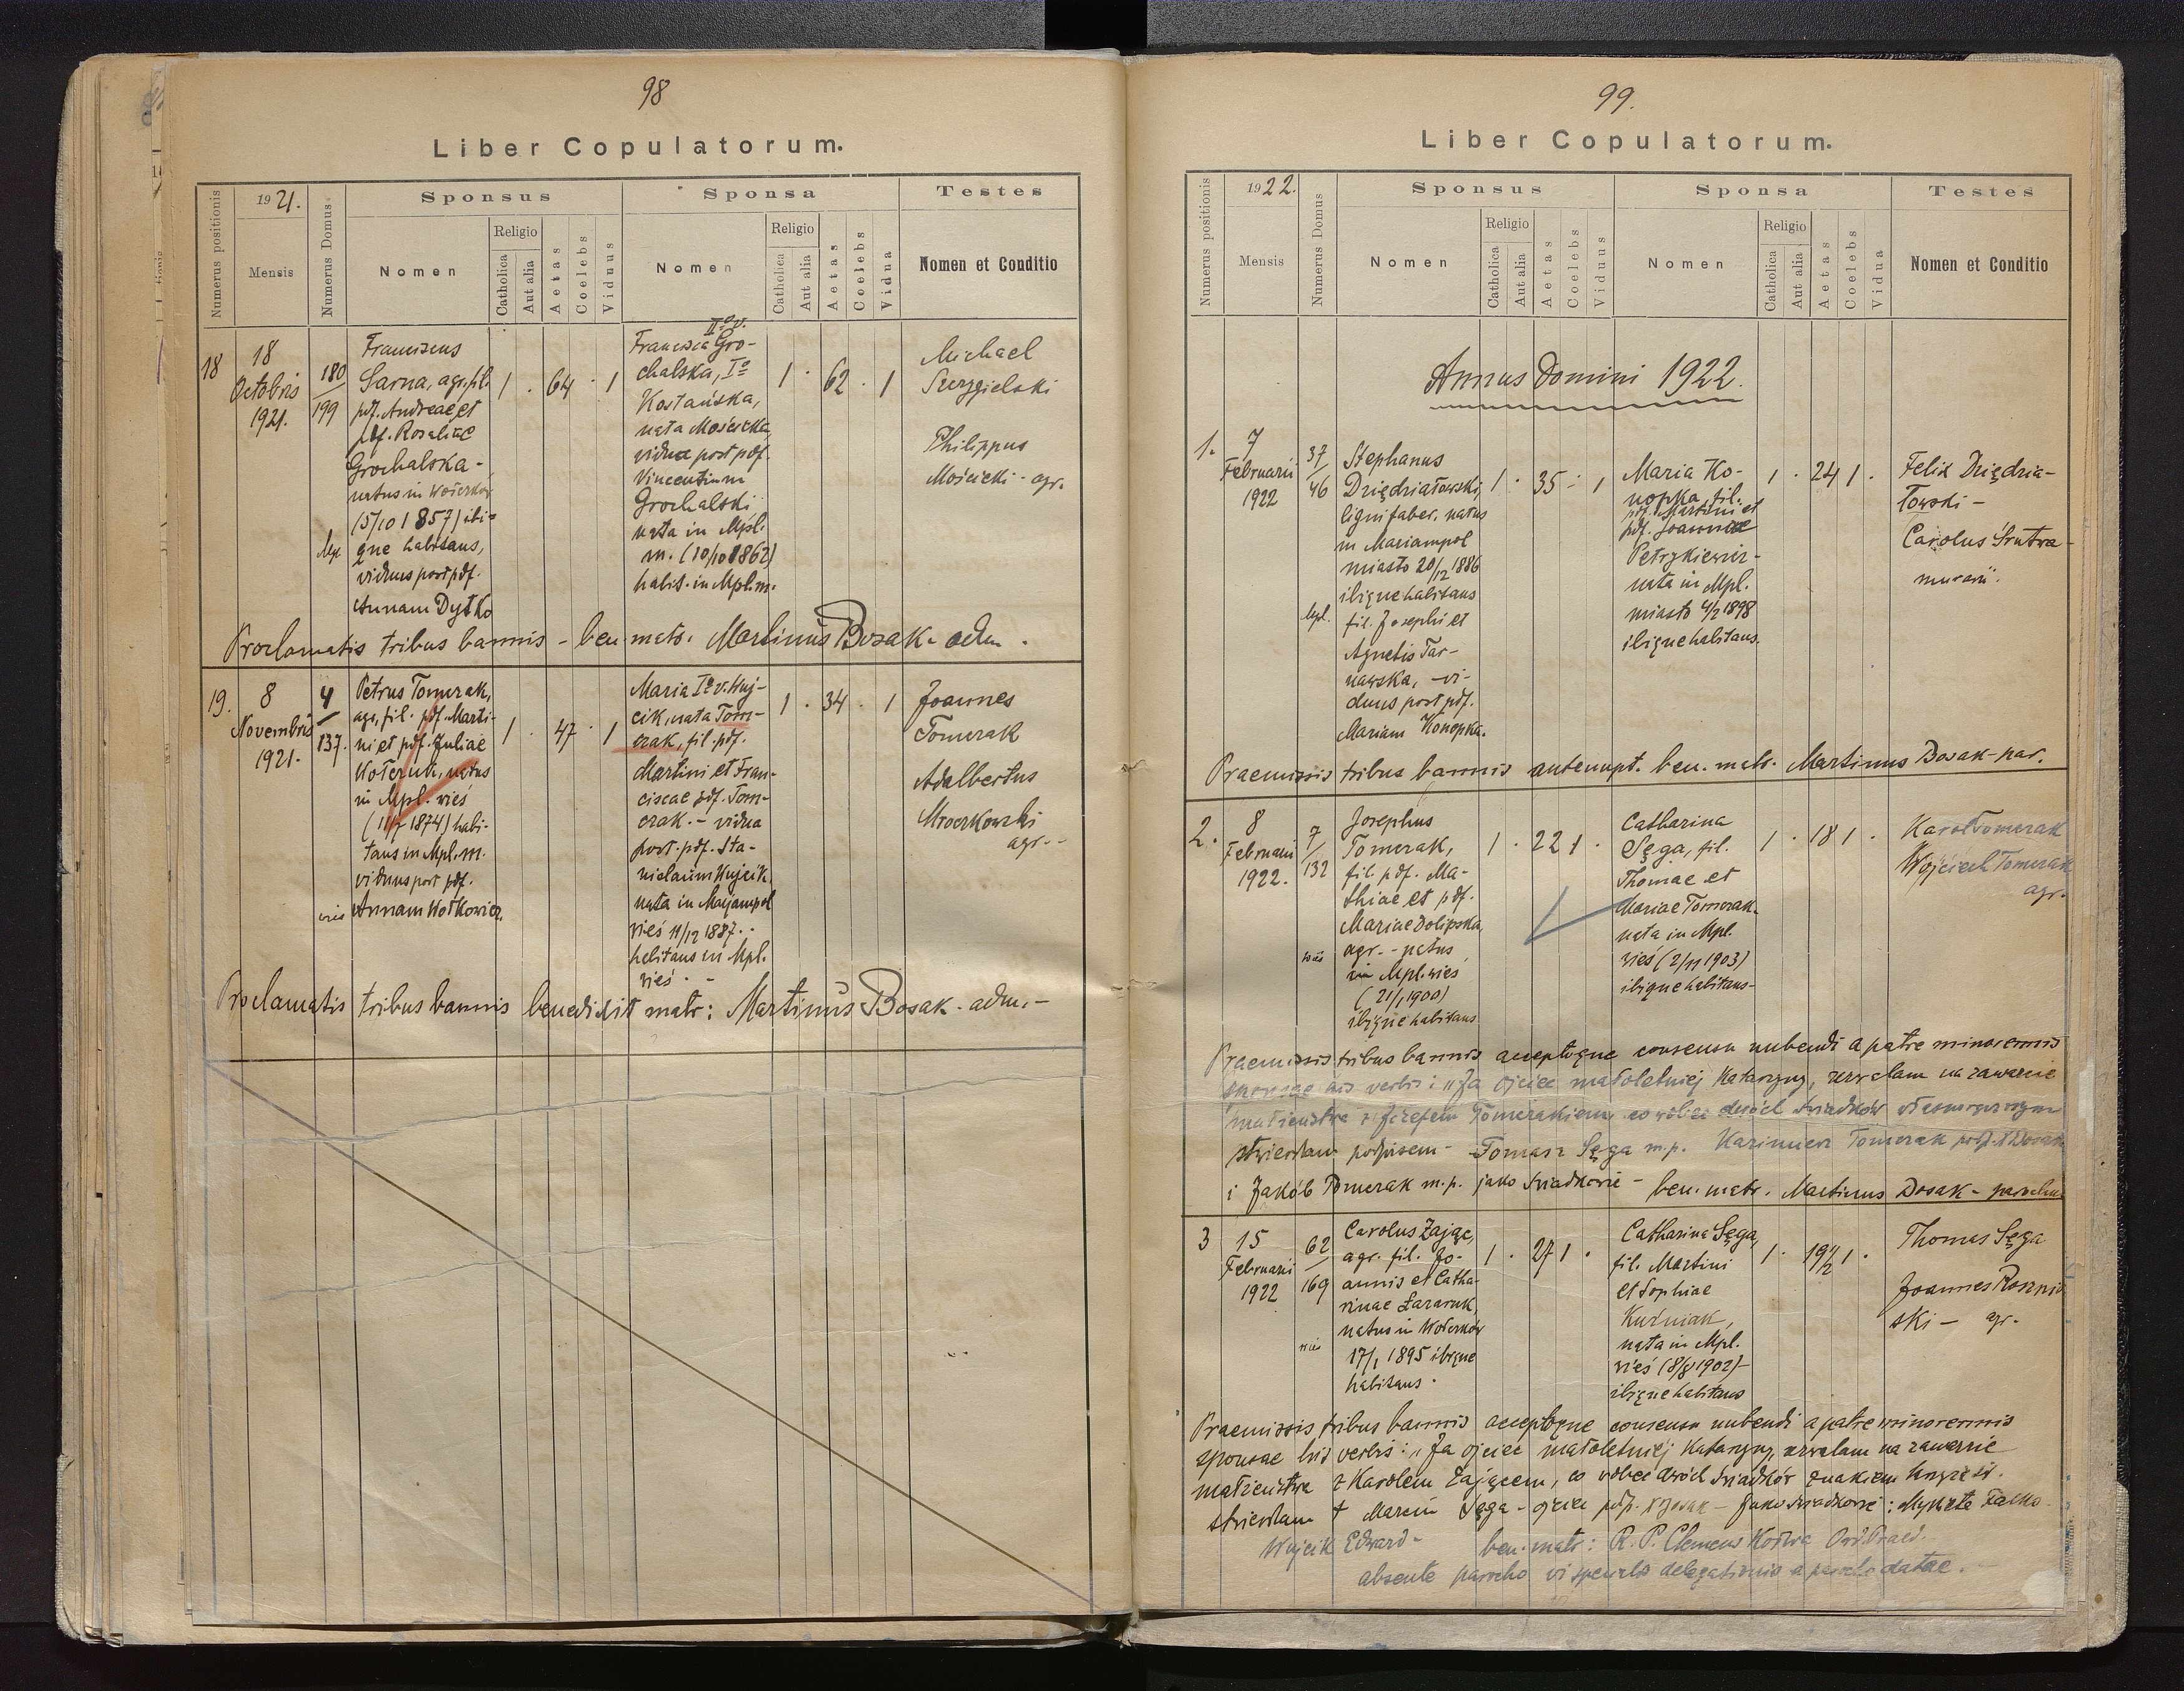 98
Liber Copulatorum.
Numerus positionis
1921.
Mensis
Numerus Domus
Sponsus
Nomen
Religio
Catholica
Aut alia
Aetas
Coelebs
Viduus
Sponsa
Nomen
Religio
Catholica
Aut alia
Aetas
Coelebs
Vidua
Testes
Nomen et Conditio
18
18
Octobris
1921.
180
199
Mpl
Franciscus
Sarna, agr. fil.
pdf. Andreae et
pdf. Rosaliae
Grochalska -
natus in Wołczków
(5/10 1857) ibi-
que habitans,
viduus post pdf.
Annam Dytko
1 . 64 . 1
IIo v.
Francisca Gro-
chalska, Io
Kostańska,
nata Mościcka,
vidua post pdf.
Vincentium
Grochalski
nata in Mpl.
m. (10/10 1862)
habit. in Mpl. m.
1 . 62 . 1
Michael
Szczygielski
Philippus
Mościcki - agr.
Proclamatis tribus bannis - ben. matr. Martinus Bosak - adm.
19.
8
Novembris
1921.
4
137.
wieś
Petrus Tomerak,
agr. fil. pdf. Marti-
ni et pdf. Juliae
natus
in Mpl. wieś
1874) habi-
tans in Mpl. m.
viduus post pdf.
Annam Wołkowicz.
1 . 47 . 1
Maria Io v. Wuj-
cik, nata Tom-
erak, fil. pdf.
Martini et Fran-
ciscae pdf. Tom-
erak. - vidua
post. pdf. Sta-
nislaum Wujcik
nata in Maryampol
wieś 11/12 1887. .
habitans in Mpl.
wieś. -
1 . 34 . 1
Joannes
Tomerak
Adalbertus
Mroczkowski
agr. -
Proclamatis tribus bannis benedixit matr: Martinus Bosak - adm. -
99.
Liber Copulatorum.
Numerus positionis
1922.
Mensis
Numerus Domus
Sponsus
Nomen
Religio
Catholica
Aut alia
Aetas
Coelebs
Viduus
Sponsa
Nomen
Religio
Catholica
Aut alia
Aetas
Coelebs
Vidua
Testes
Nomen et Conditio
Annus Domini 1922.
1.
7
Februarii
1922
37
46
Mpl.
Stephanus
Dziędziałowski,
lignifaber, natus
in Mariampol
miasto 20/12 1886
ibique habitans
fil. Josephi et
Agnetis Tar-
nawska, - vi-
duus post pdf.
Mariam Konopka.
1 . 35 . 1
Maria Ko-
nopka, fil.
pdf. Martini et
pdf. Joannae
Petrykiewicz -
nata in Mpl.
miasto 4/2 1898
ibique habitans.
1 . 24 1 .
Felix Dziędzia-
łowski -
Carolus Śrutwa -
murarii.
Praemissis tribus bannis antenupt. ben. matr. Martinus Bosak - par.
2.
8
Februarii
1922.
7
132
wieś
Josephus
Tomerak,
fil. pdf. Ma-
thiae et pdf.
Mariae Dolipska,
agr. - natus
in Mpl. wieś
(21/1 1900)
ibique habitans
1 . 22 1 .
Catharina
Sęga, fil.
Thomae et
Mariae Tomerak.
nata in Mpl.
wieś (2/11 1903)
ibique habitans -
1 . 18 1 .
Karol Tomerak
Wojciech Tomerak
agr.
Praemissis tribus bannis acceptoque consensu nubendi a patre minorennis
sponsae his verbis: „Ja ojciec małoletniej Katarzyny, zezwalam na zawarcie
małżeństwa z Józefem Tomerakiem co wobec dwóch świadków własnoręcznym
stwierdzam podpisem - Tomasz Sęga m.p. Kazimierz Tomerak podp. X Bosak
i Jakób Tomerak m.p. jako świadkowie - ben. matr. Martinus Bosak - parochus
3
15
Februarii
1922
62
169
wieś
Carolus Zając,
agr. fil. Jo-
annis et Catha-
rinae Łazaruk,
natus in Wołczków
17/1 1895 ibique
habitans.
1 . 27 1 .
Catharina Sęga,
fil. Martini
et Sophiae
Kuźniak,
nata in Mpl.
wieś (8/8 1902) -
ibique habitans
1 . 19 1/2 1 .
Thomas Sęga
Joannes
ski - agr.
Praemissis tribus bannis acceptoque consensu nubendi a patre minorennis
sponsae his verbis: „Ja ojciec małoletniej Katarzyny, zezwalam na zawarcie
małżeństwa z Karolem Zającem, co wobec dwóch świadków znakiem krzyża św.
stwierdzam + Marcin Sęga - ojciec pdp. X Bosak - Jako świadkowie: Mykieta Fałko
Wujcik Edward - ben. matr: R. P. Clemens Ord. Praed.
absente parocho vi specialis delegationis a parocho datae.